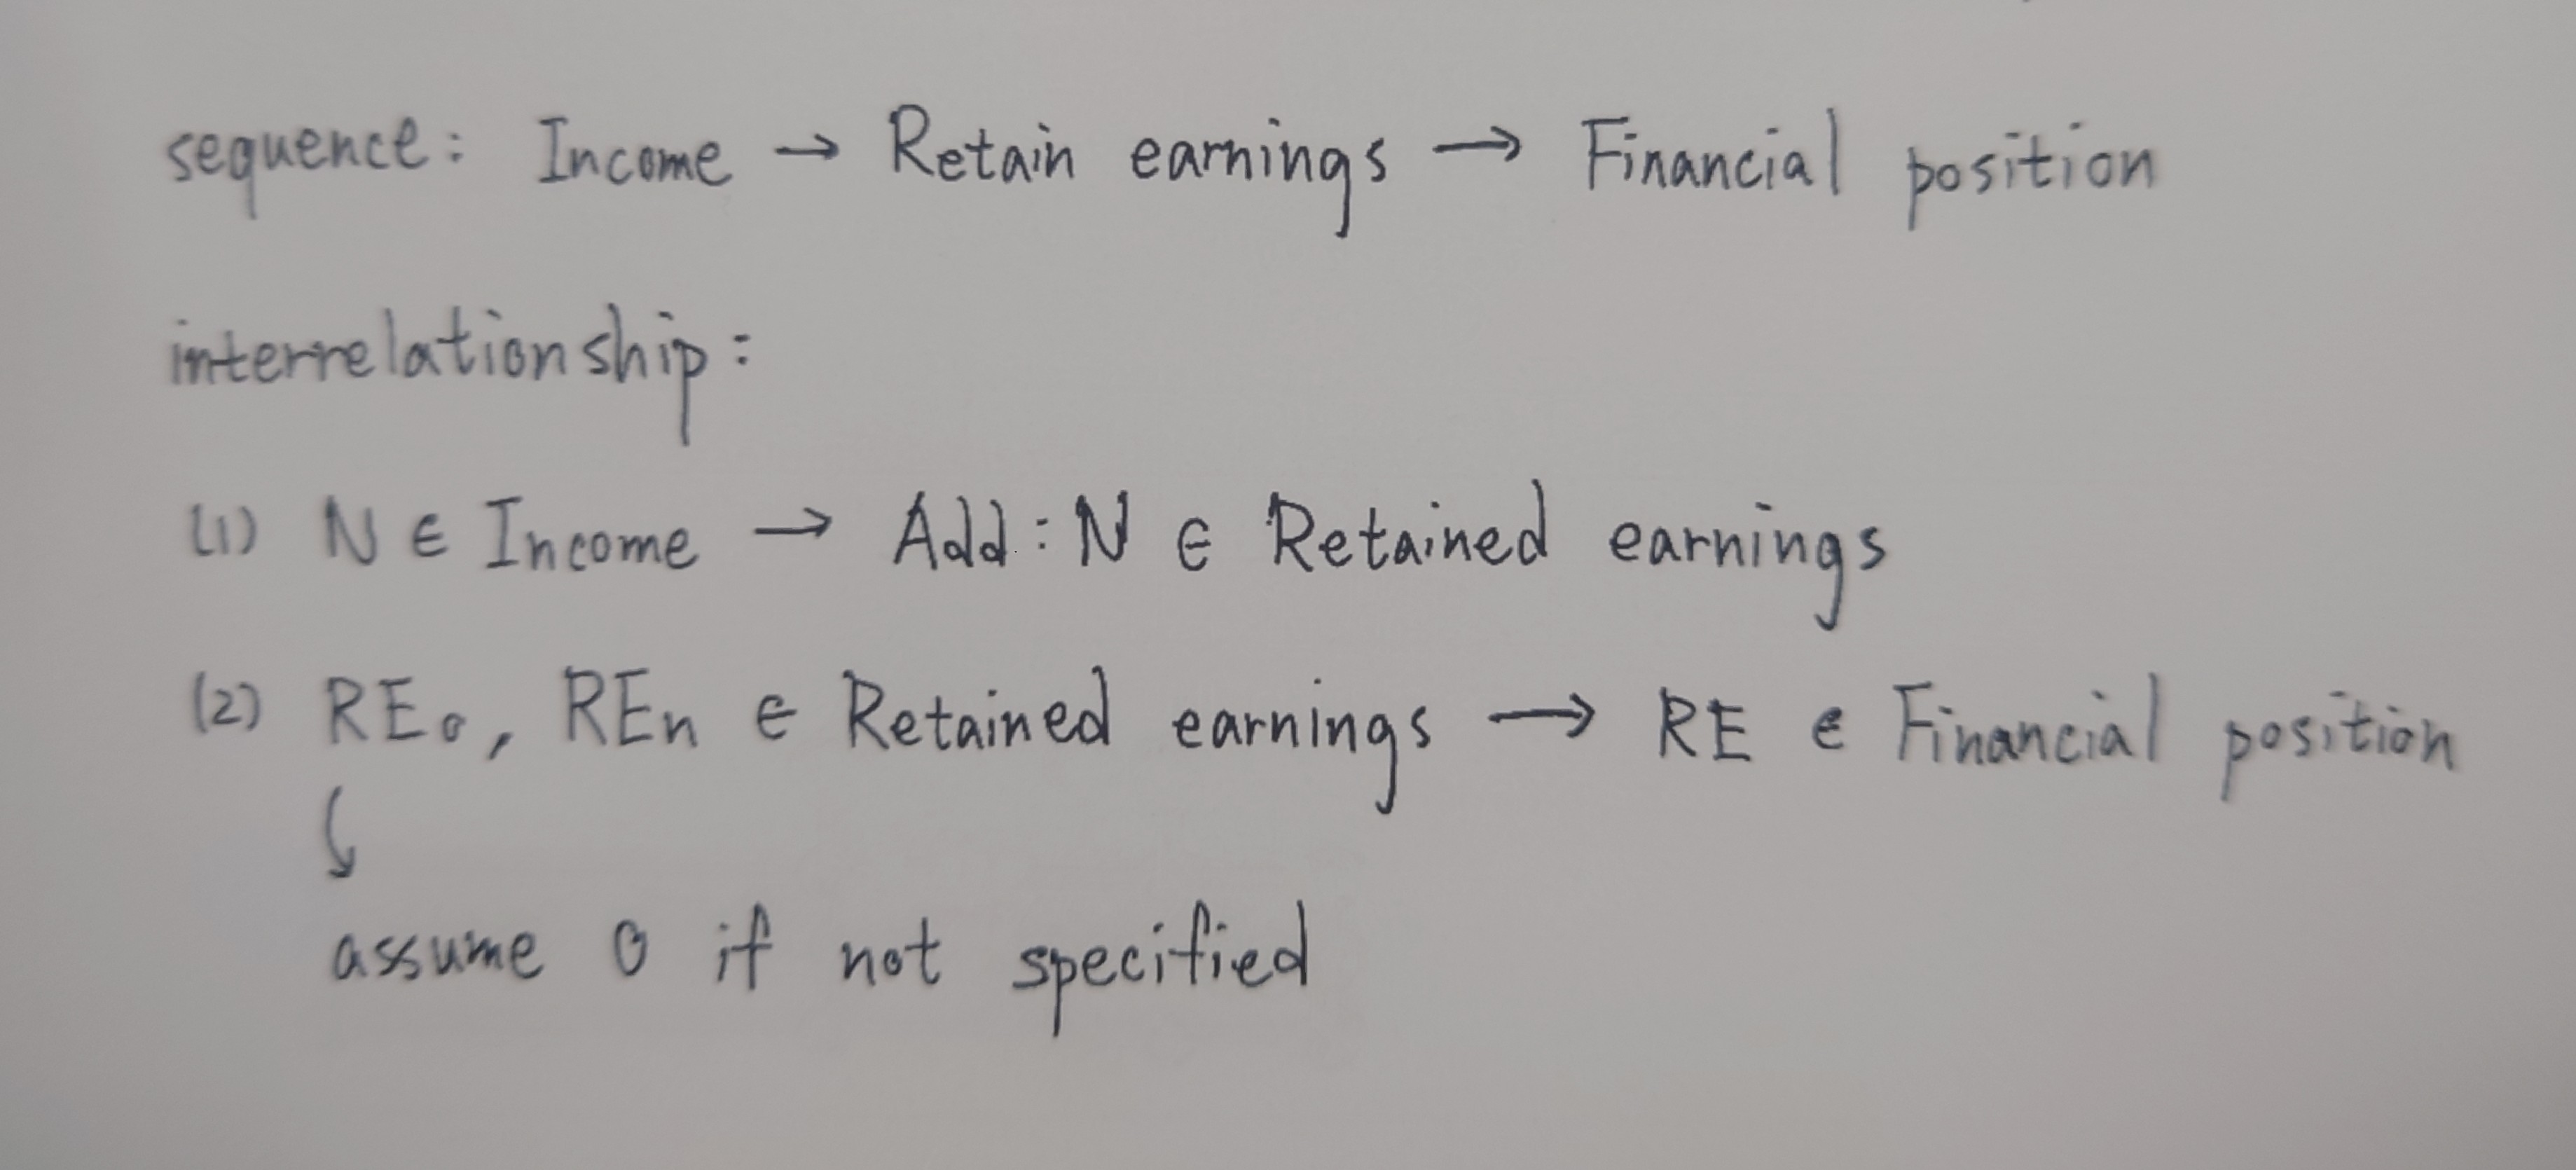 sequence: Income → Retain earnings → Financial position
interrelationship:
(1) N ∈ Income → Add: N ∈ Retained earnings
(2) REo, REn ∈ Retained earnings → RE ∈ Financial position
assume 0 if not specified